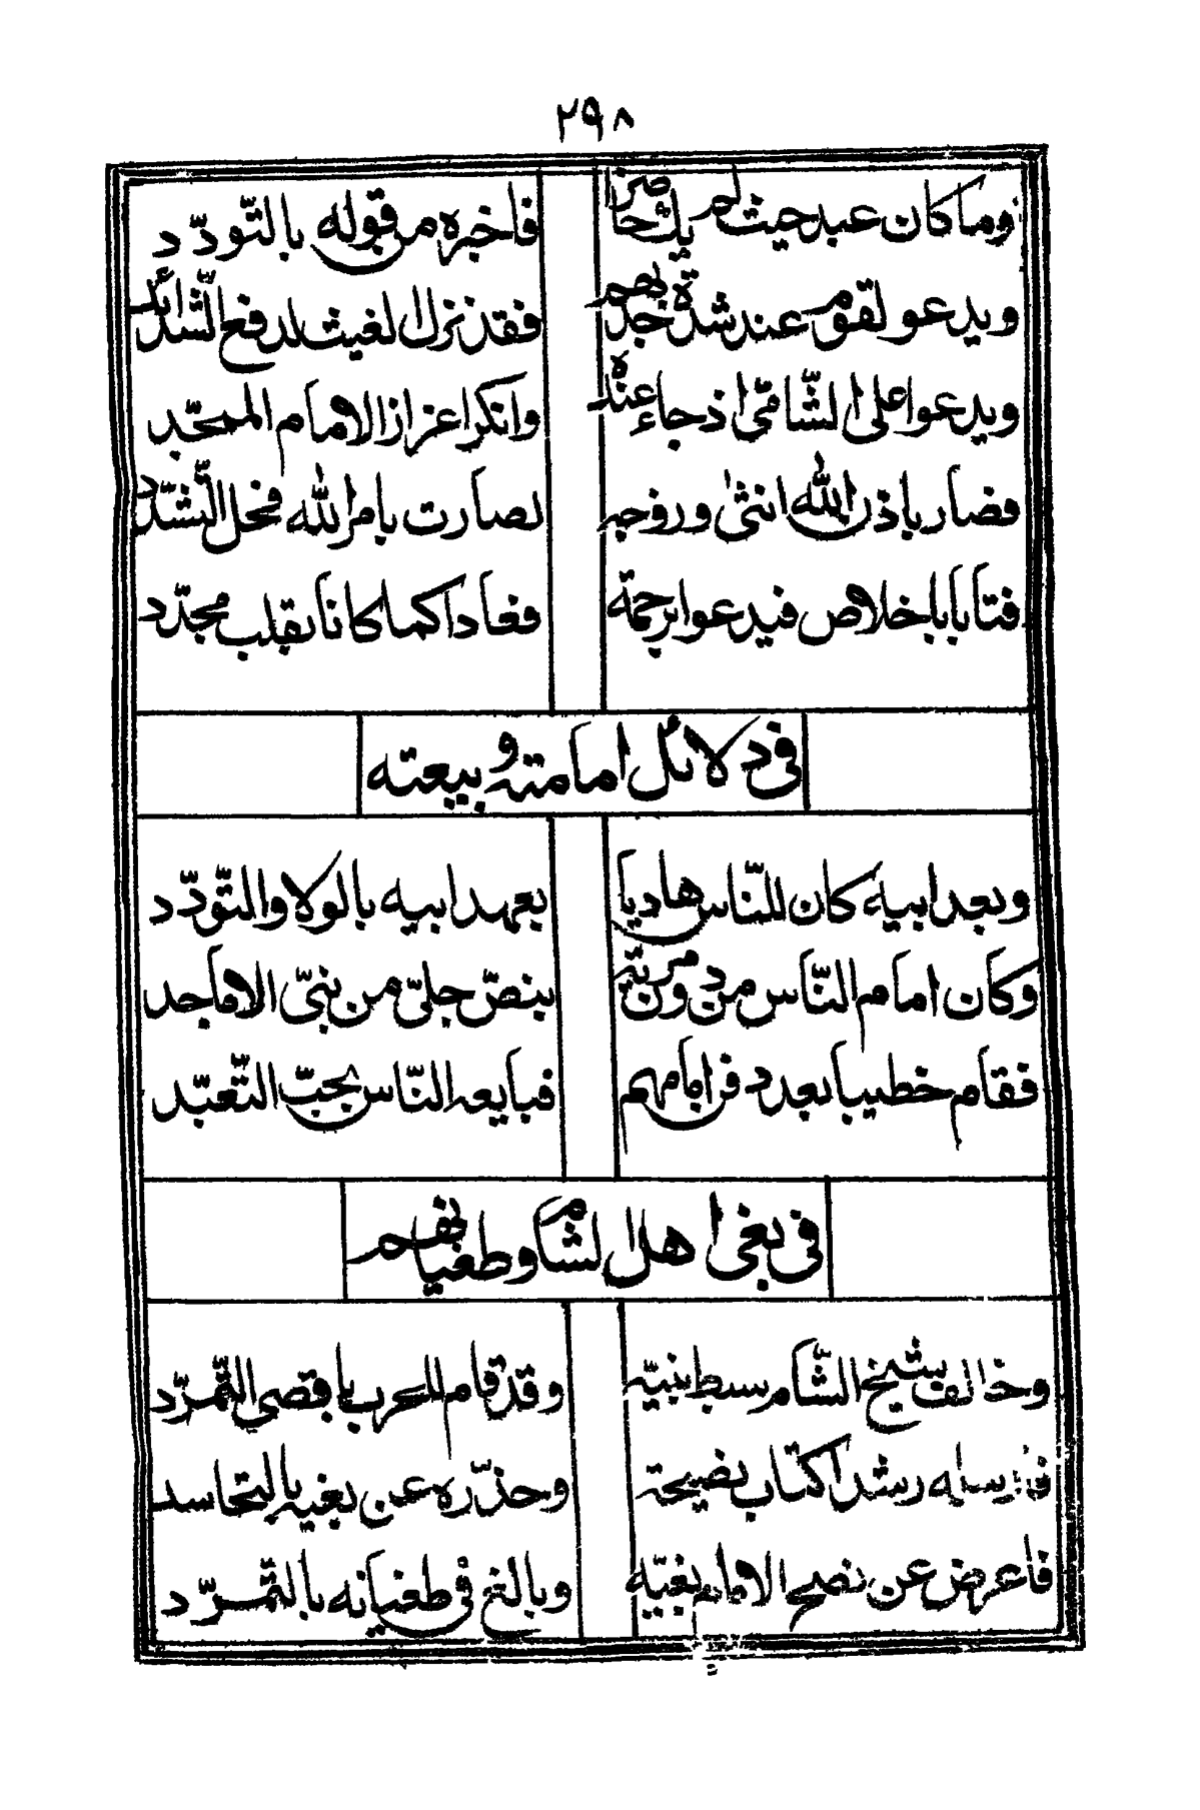 ٢٩٨
وما كان عبد حيث لم يك حاضرا فاخبره من قوله بالتّودّد
ويدعو لقوم عند شدّة جدبهم فقد نزل الغيث لدفع الشّدائد
ويدعوا على الشّامىّ اذ جاء عنده وانكر اعزاز الامام الممجّد
فصار باذن الله انثىٰ وزوجه لصارت بامر الله فحل التّشدّد
فتابا باخلاص فيدعوا برحمة فعادا كما كانا بقلب مجدّد
فى دلائل امامته وبيعته
وبعد ابيه كان للنّاس هاديا بعهد ابيه بالولا والتّودّد
وكان امام النّاس من دون مرية بنصّ جلىّ من نبىّ الاماجد
فقام خطيبا بعد د فرامامهم فبايعه النّاس بحبّ التّعبّد
فى بغى اهل الشام وطغيانهم
وخالف شيخ الشّام سبط نبيّه وقد قام للحرب باقصى التّمرّد
رشد اكتاب نصيحة وحذّره عن بغيه بالتحاسد
فاعرض عن نصح الامام بغيّه وبالغ فى طغيانه بالتّمرّد